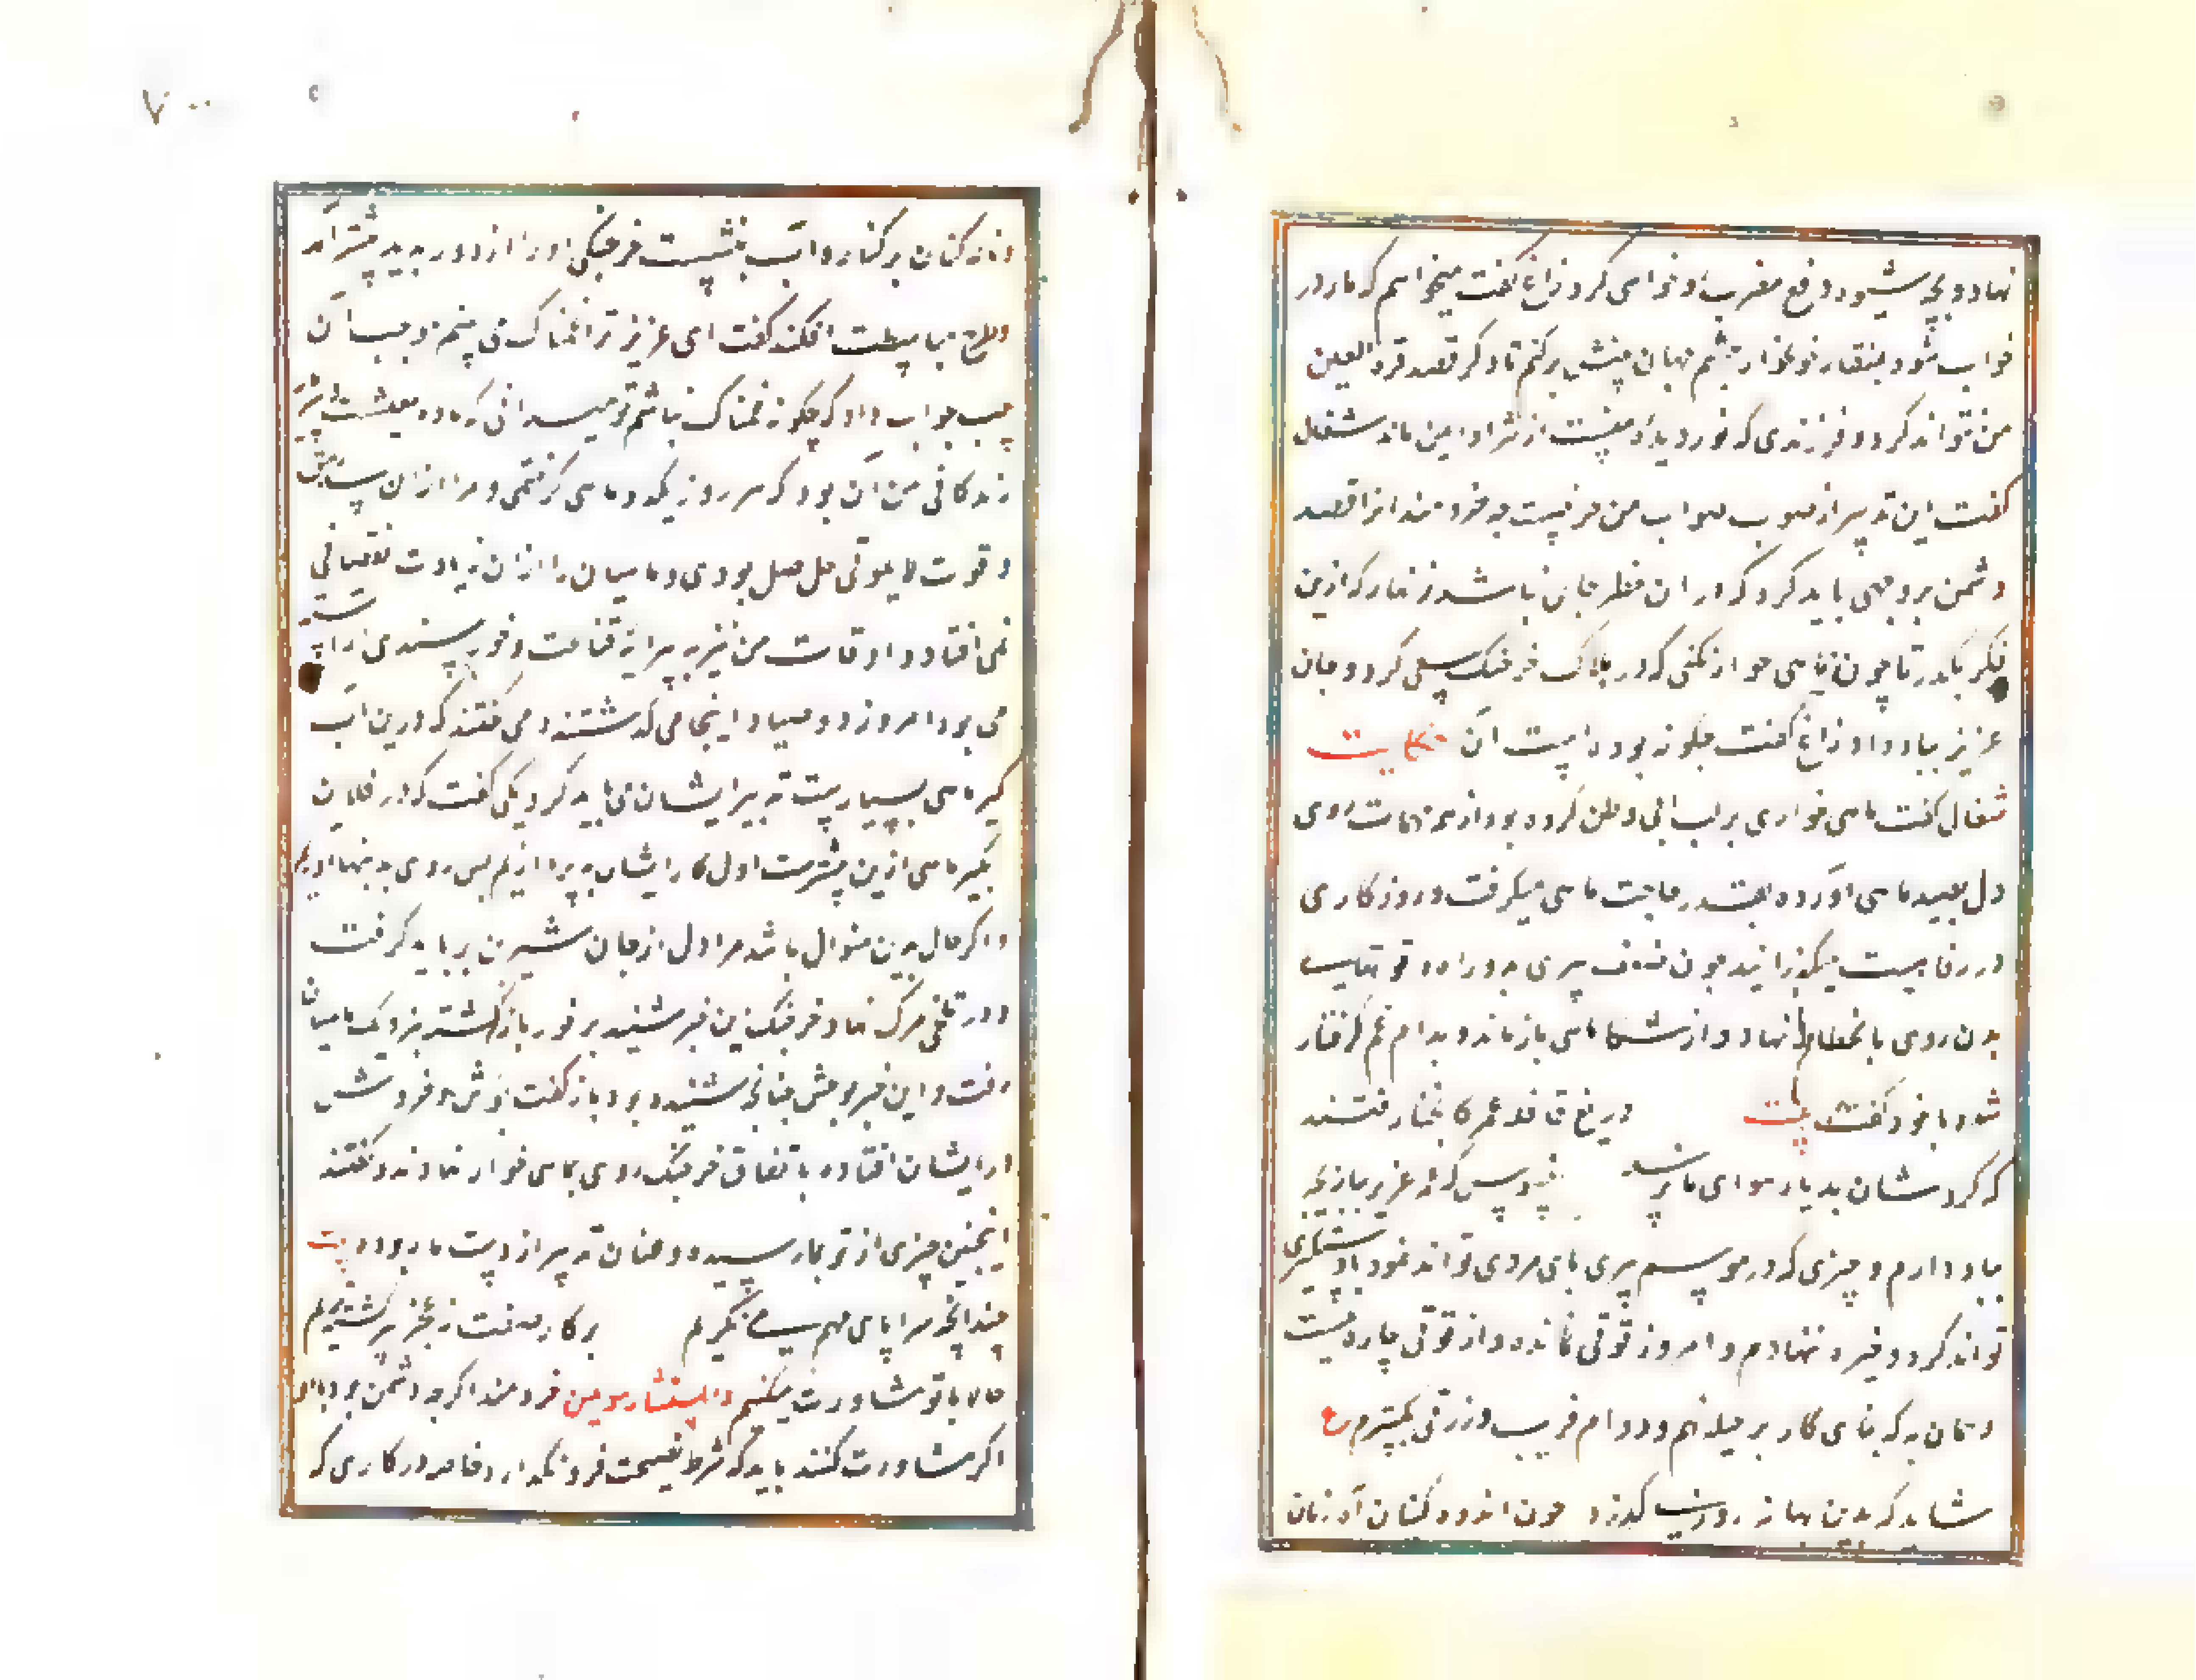 نهاد و بچه شیوه دفع مضرت او خواهی کرد زاغ گفت میخواهم که مار در
خواب شود بمنقار خونخوار چشم جهان بینش برکنم تا دگر قصد قرة العین
من نتواند کرد و فرزندی که نور دیده منست از شر او ایمن ماند شغال
گفت این تدبیر از صوب صواب منحرفیست چه خردمند انرا قصد
دشمن بر وجهی باید کرد که در ان خطر جان نباشد زنهار که ازین
فکر بگذر تا چون ماهی خوار نکنی که در هلاک خرچنگ سعی کرد و جان
عزیز بباد داد زاغ گفت چگونه بوده است آن حکایت
شغال گفت ماهی خواری بر لب ابی وطن کرده بود و از همه مهمات روی
دل بصید ماهی آورده بقدر حاجت ماهی میگرفت و روزگاری
در رفاهیت میگذرانید چون ضعف پیری بدو راه و قوتهای
بدن روی بانحطاط نهاد و از شکار ماهی بازماند و بدام غم گرفتار
شده با خود گفت بیت دریغ قافله عمر کانچنان رفتند
که گردشان بدیار هوای ما نرسد افسوس که عمر عزیز ببازیچه
بباد دادم و چیزی که در موسم پیری پای مردی تواند نمود یا دستگیری
تواند کرد ذخیره ننهادم و امروز قوتی نمانده و از قوتی چاره نیست
همان به که بنای کار بر حیله نهم و دام فریب و زرقی بگسترم ع
شاید که بدین بهانه روزی گذرد چون اندوه کنان آه زنان
و ناله کنان بر کنار آب بنشست خرچنگی او را از دور بدید پیشتر آمد
و طرح مباسطت افکند گفت ای عزیز ترا غمناک می بینم موجب آن
چیست جواب داد که چگونه غمناک نباشم تو میدانی که ماده معیشت و
زندگانی من آن بود که هر روز یکدو ماهی گرفتمی و مرا از ان سد رمقی
و قوت لایموتی حاصل بودی و ماهیان را از ان زیادت نقصانی
نمی افتاد و اوقات من نیز به پیرایه قناعت و خورسندی آراسته
می بود امروز دو صیاد اینجا می گذشتند و می گفتند که درین آب
گیر ماهی بسیارست تدبیر ایشان می باید کرد یکی گفت که در فلان
آبگیر ماهی ازین بیشترست اول کار ایشان بپردازیم پس روی بدینها آوریم
و اگر حال بدین منوال باشد مرا دل از جان شیرین بر باید گرفت
و در تلخی مرگ نهاد خرچنگ این خبر شنید بر فور بازگشته بنزدیک ماهیان
رفت و این خبر موحش چنانچه شنیده بود باز گفت جوش و خروش
در ایشان افتاده باتفاق خرچنگ روی بماهی خوار نهادند و گفتند
اینچنین چیزی از تو بما رسیده و عنان تدبیر از دست ما ربوده بیت
چندانچه سراپای مهم می نگریم پرگار صفت ز عجز سرگشته تریم
حالا با تو مشاورت میکنیم و المستشار موتمن خردمند اگرچه دشمن بود با او
اگر مشاورت کنند باید که شرط نصیحت فرو نگذارد خاصه در کاری که